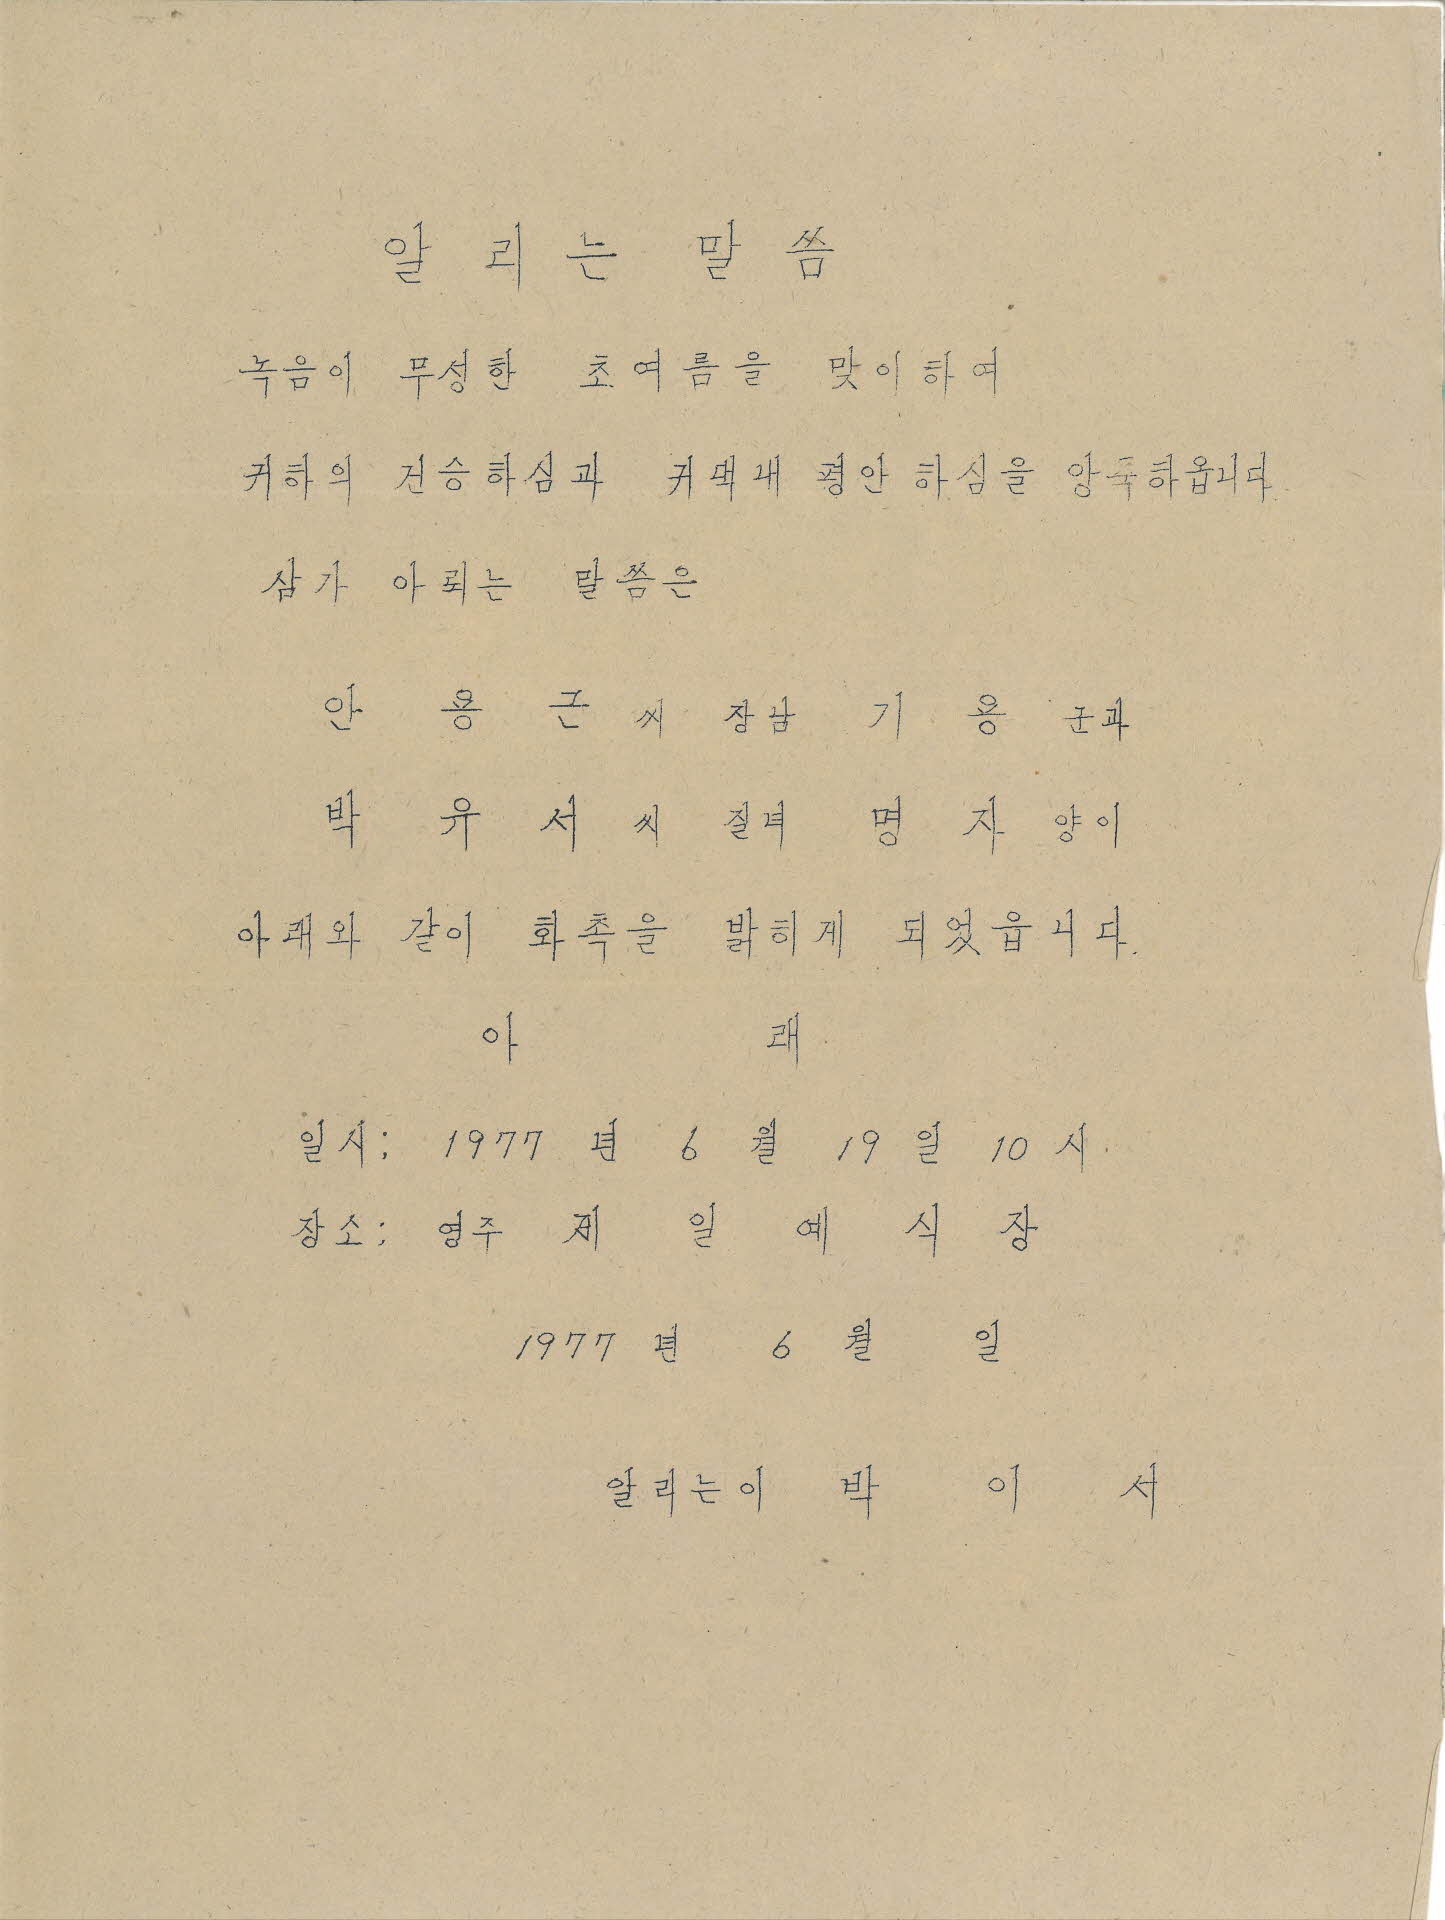 알리는 말씀
녹음이 무성한 초여름을 맞이하여
귀하의 건승하심과 귀댁내 평안하심을 앙축하옵니다
삼가 아뢰는 말씀은
안용근씨 장남 기용 군과
박유서씨 질녀 명자 양이
아래와 같이 화촉을 밝히게 되었읍니다.
아래
일시; 1977년 6월 19일 10시.
장소; 영주 제일예식장
1977년 6월 일
알리는이 박이서